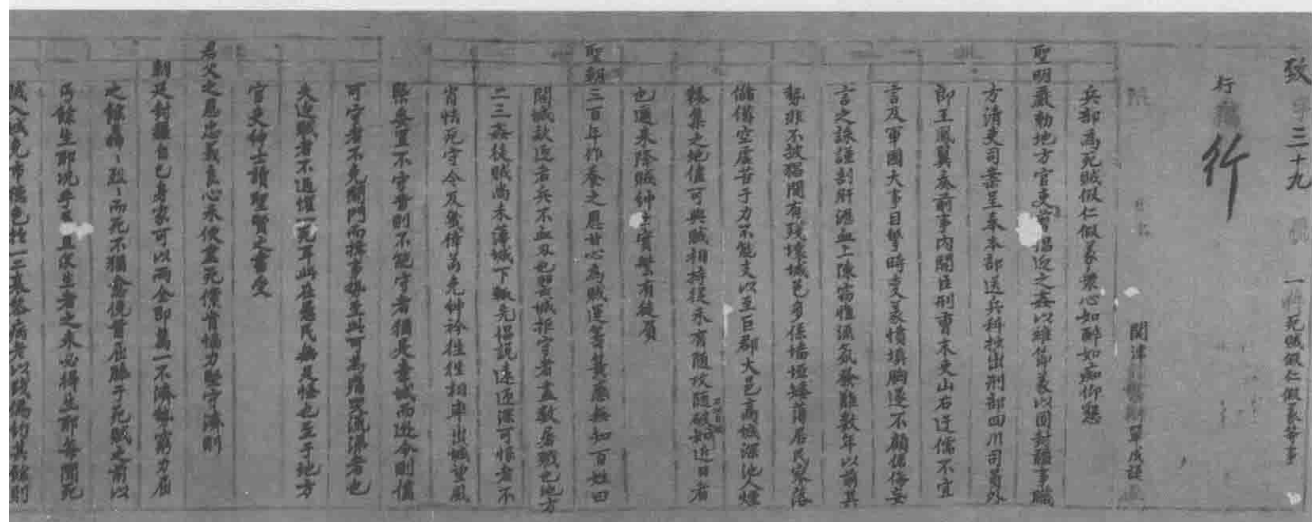 致字三十九號　一件死賊假仁假義等事
行
行
兵部為死賊假仁假義眾心如醉如痴仰懇
聖明嚴勅地方官吏首倡迎之姦以維節義以固封疆事職
方清吏司案呈奉本部送兵科抄出刑部四川司員外
郎王鳳翼奏前事內開臣刑曹末吏山右迂儒不宜
言及軍國大事目擊時變義憤填胸遂不顧僭侮妄
言之誅謹剖肝瀝血上陳竊惟流氛發難數年以前其
勢非不披猖間有殘壞城邑多係墻垣矮薄居民寥落
儲備空虛苦于力不能支以至巨郡大邑高城深池人煙
輳集之地儘可與賊相持從未有隨攻隨破如近日者
也邇來降賊紳士實繁有徒負
聖朝三百年作養之恩甘心為賊運籌簧惑無知百姓曰
開城款迎者兵不血刃也嬰城拒守者盡數屠戮也地方
二三姦徒賊尚未薄城下輒先倡說遠迎深可恨者不
肖怯死守令及幾倖苟免紳衿往往相率出城望風
棄置不守昔則不能守者猶是棄城而逃今則儘
可守者不免開門而揖事勢至此可為痛哭流涕者也
夫迎賊者不過懼一死耳此在愚民無足怪也至于地方
官吏紳士讀聖賢之書受
君父之恩忠義良心未便盡死儻肯協力堅守濟則
朝廷封疆自己身家可以兩全即萬一不濟勢窮力屈
之餘轟轟烈烈而死不猶愈俛首屈膝于死賊之前以
丐餘生耶況乎且迎生者之未必得生耶每聞死
賊入城先市德色